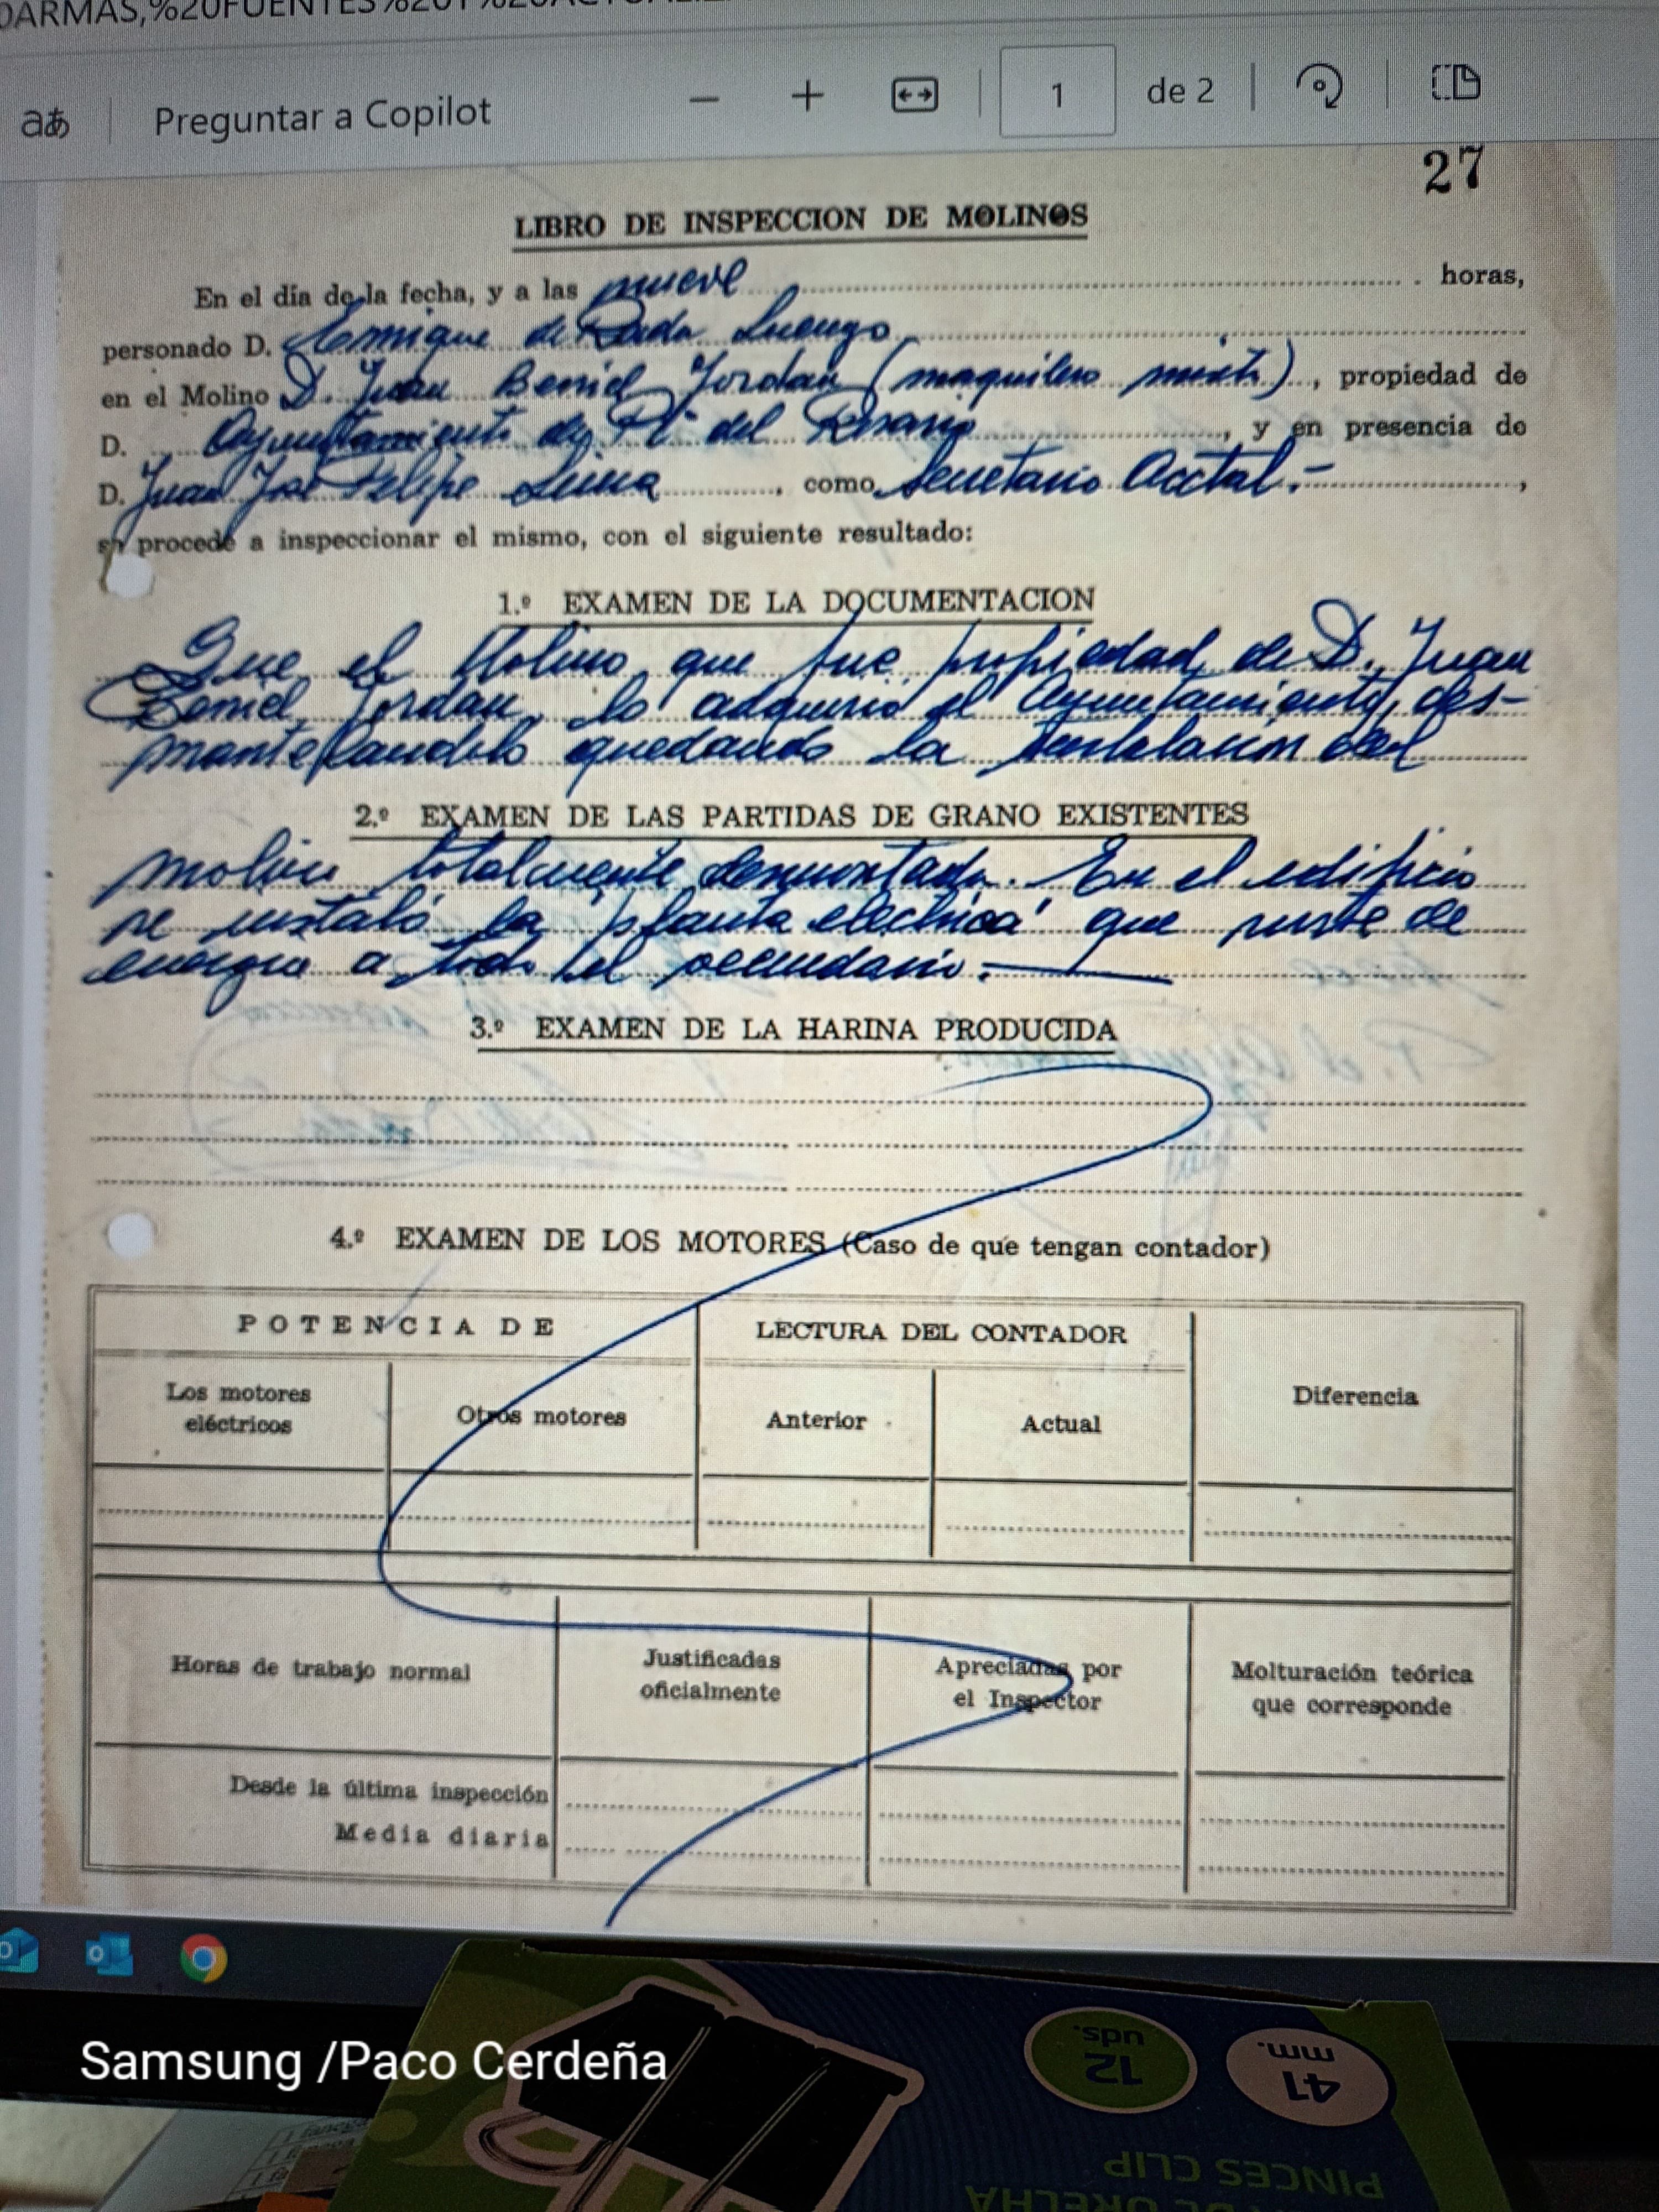 DARMAS,%20FUENTES%20Y%20ACTUALIZ
aあ Preguntar a Copilot − + 1 de 2
27
LIBRO DE INSPECCION DE MOLINOS
En el día de la fecha, y a las nueve horas,
personado D. Enrique de Rada Luengo
en el Molino D. Juan Beniel Jordan (maquilero mixto), propiedad de
D. Ayuntamiento de Pto del Rosario, y en presencia de
D. Juan José Felipe Lima, como Secretario Acctal.-,
se procede a inspeccionar el mismo, con el siguiente resultado:
1.º EXAMEN DE LA DOCUMENTACION
Que el Molino que fue propiedad de D. Juan
Beniel Jordan, lo adquirió el Ayuntamiento, des-
mantelandolo quedando la instalacion del
2.º EXAMEN DE LAS PARTIDAS DE GRANO EXISTENTES
molino totalmente desmontada. En el edificio
se instaló la "planta electrica" que surte de
energia a todo el vecindario.-
3.º EXAMEN DE LA HARINA PRODUCIDA
4.º EXAMEN DE LOS MOTORES (Caso de que tengan contador)
POTENCIA DE LECTURA DEL CONTADOR
Los motores eléctricos Otros motores Anterior Actual Diferencia
Horas de trabajo normal Justificadas oficialmente Apreciadas por el Inspector Molturación teórica que corresponde
Desde la última inspección
Media diaria
Samsung /Paco Cerdeña
12 uds.
41 mm.
PINCES CLIP